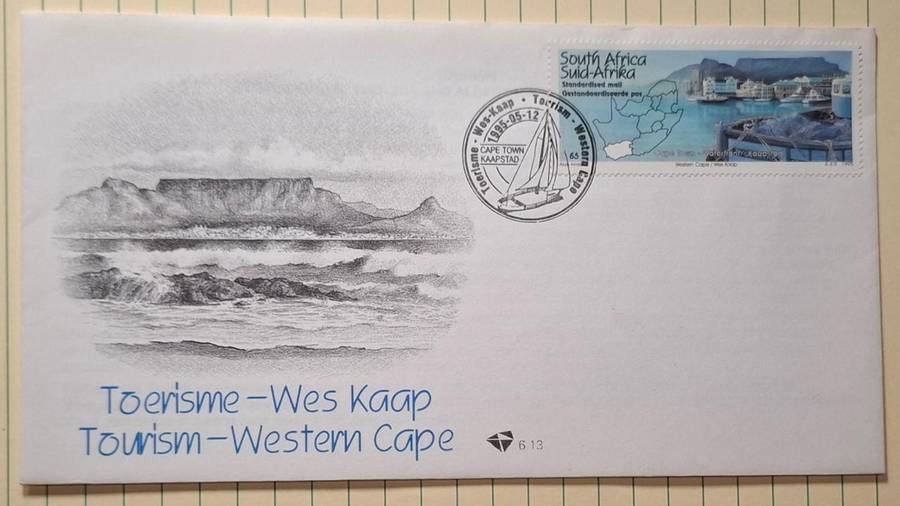 South Africa
Suid-Afrika
Standardised mail
Gestandaardiseerde pos
Cape Town - Waterfront - Kaapstad
Western Cape / Wes-Kaap
Toerisme - Wes-Kaap • Tourism - Western Cape
1995-05-12
CAPE TOWN
KAAPSTAD
65
Toerisme – Wes Kaap
Tourism – Western Cape
6.13